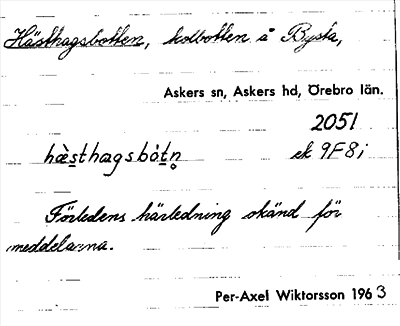 Hästhagsbotten, kolbotten å Bysta,
Askers sn, Askers hd, Örebro län.
2051
hæ̀sthagsbòtn̥ ek 9F8i
Förledens härledning okänd för
meddelarna.
Per-Axel Wiktorsson 1963